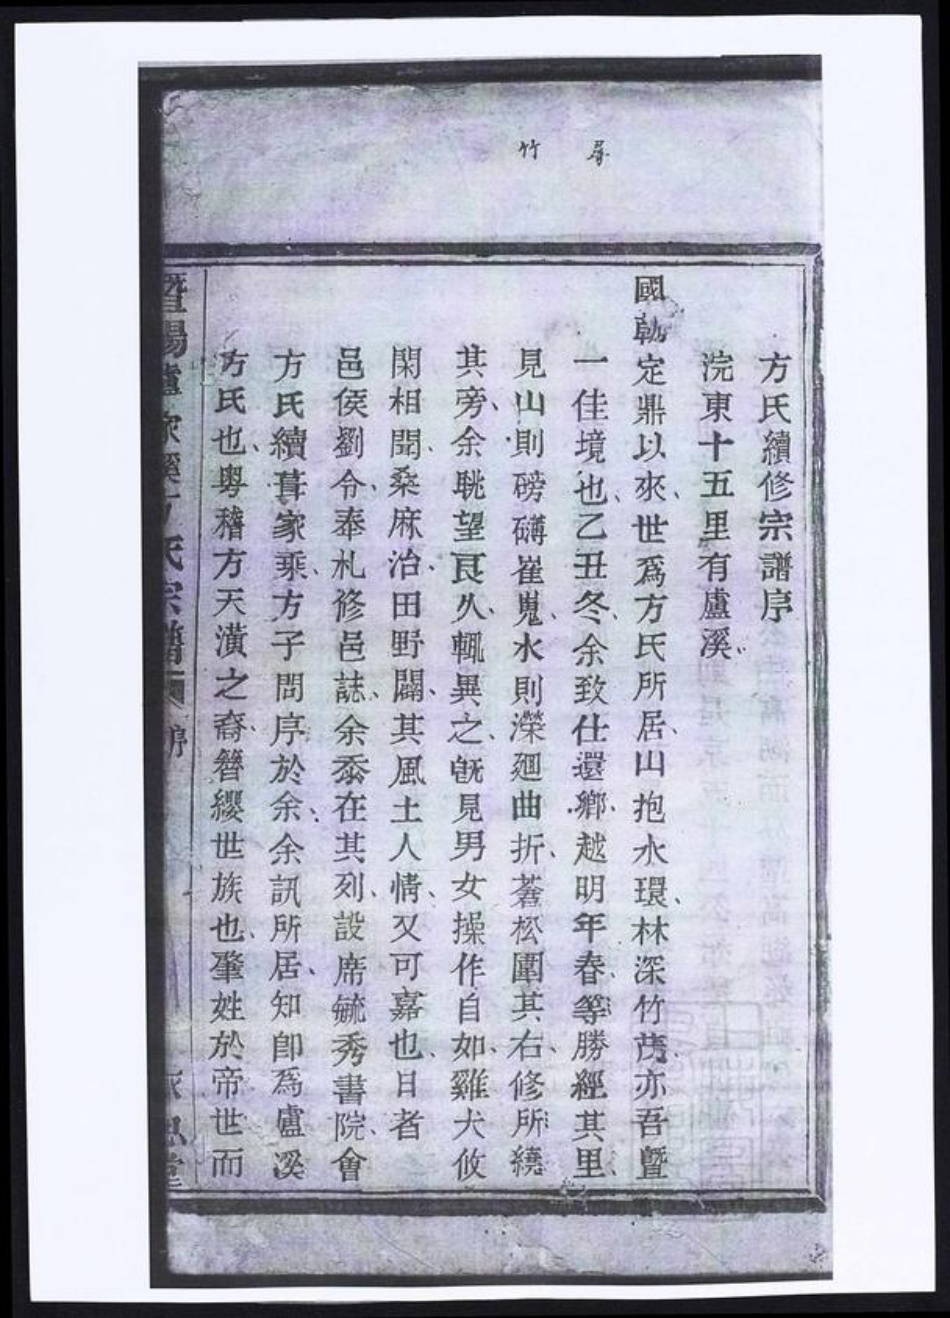 竹 屏
方氏續修宗譜序
浣東十五里有盧溪
國朝定鼎以來世爲方氏所居山抱水環林深竹茂亦吾暨
一佳境也乙丑冬余致仕還鄉越明年春等勝經其里
見山則磅礴崔嵬水則瀠廻曲折蒼松圍其右修所繞
其旁余眺望良久輒異之旣見男女操作自如雞犬攸
閑相聞桑麻治田野闢其風土人情又可嘉也日者
邑侯劉令奉札修邑誌余忝在其列設席毓秀書院會
方氏續葺家乘方子問序於余余訊所居知卽爲盧溪
方氏也粤稽方天潢之裔簪纓世族也肇姓於帝世而
暨陽盧 溪 氏宗譜 序